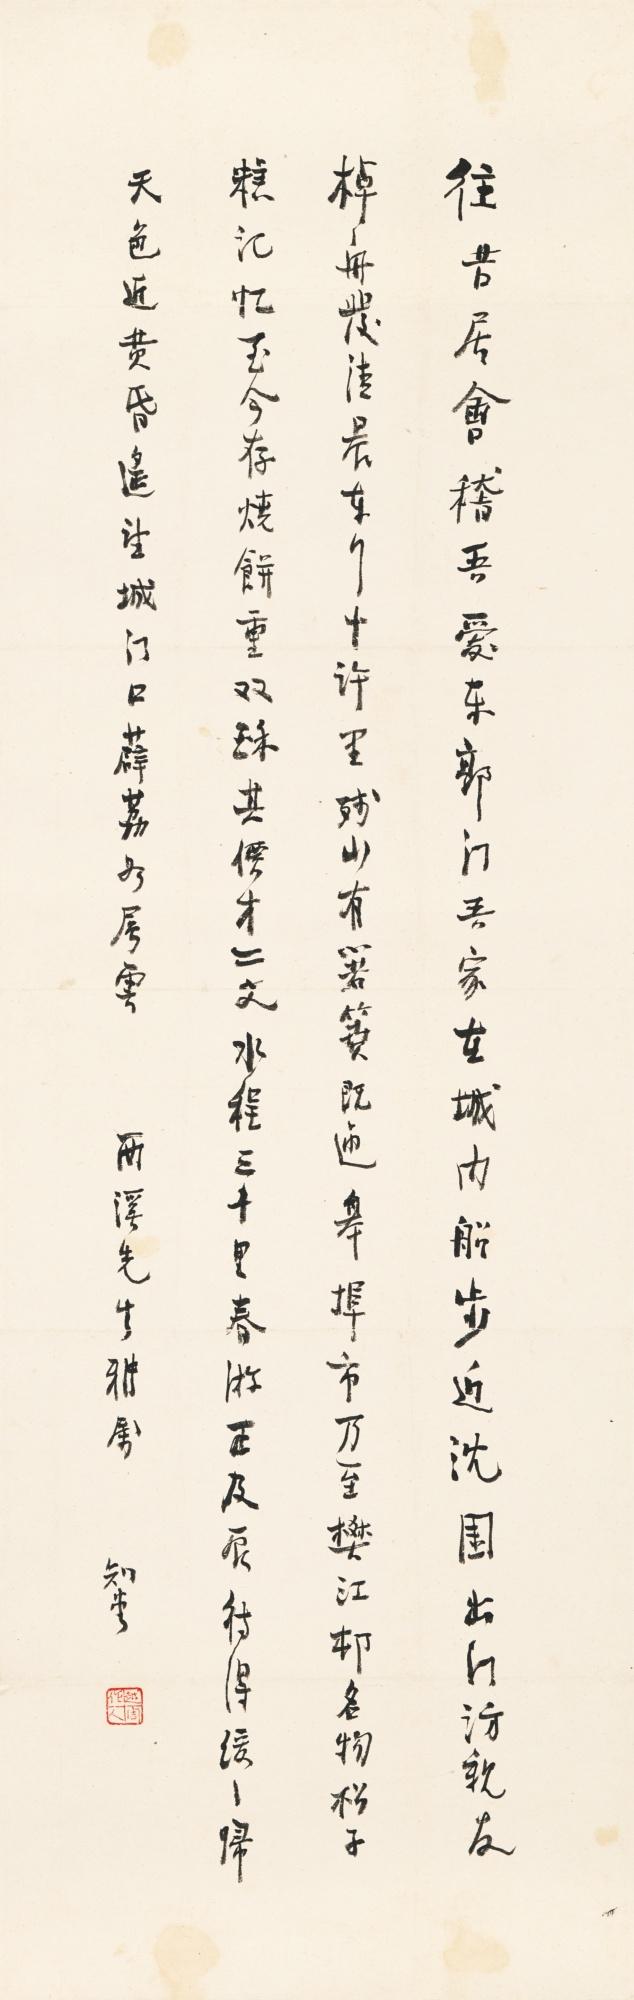 往昔居會稽吾愛东郭门吾家在城内船步近沈園出门访親友
棹舟發清晨东行十许里残山有箬簣既迊皋埠市乃至樊江邨名物松子
糕记忆至今存燒餅重双酥其價才二文水程三十里春游正及辰待得缓〻歸
天色近黄昏遙望城门口薜荔如層雲
西溪先生雅属
知堂